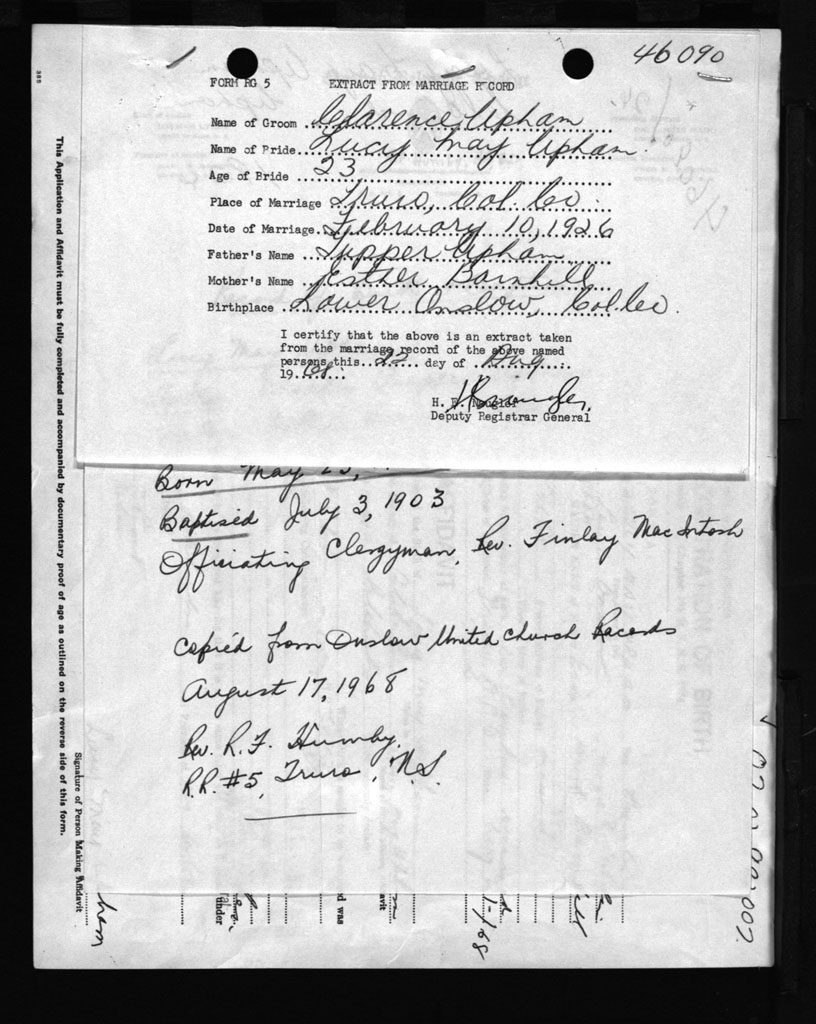 46090
FORM RG 5 EXTRACT FROM MARRIAGE RECORD
Name of Groom Clarence Upham
Name of Bride Lucy May Upham
Age of Bride 23
Place of Marriage Truro, Col. Co.
Date of Marriage February 10, 1926
Father's Name Tupper Upham
Mother's Name Esther Barnhill
Birthplace Lower Onslow, Col. Co.
I certify that the above is an extract taken
from the marriage record of the above named
persons this 22 day of Aug
1968
H. F.
Deputy Registrar General
Born May
Baptised July 3, 1903
Officiating Clergyman, Rev. Finlay MacIntosh
Copied from Onslow United Church Records
August 17, 1968
Rev. R. F. Humby,
R.R. #5, Truro, N.S.
This Application and Affidavit must be fully completed and accompanied by documentary proof of age as outlined on the reverse side of this form.
Signature of Person Making Affidavit
ham
under
d was
avit